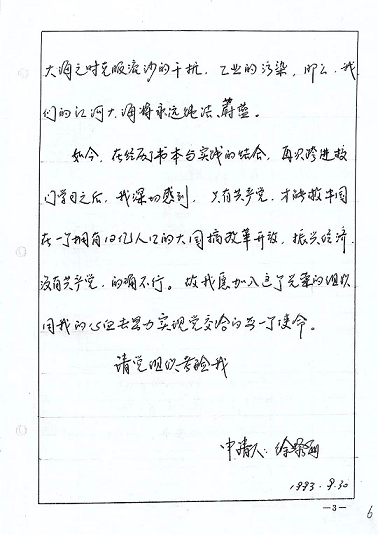 大海之时克服流沙的干扰、工业的污染，那么，我
们的江河大海将永远纯洁、蔚蓝。
如今，在经历了书本与实践的结合，再次跨进校
门学习之后，我深切感到，只有共产党，才能救中国
在一个拥有12亿人口的大国搞改革开放，振兴经济，
没有共产党，的确不行。故我愿加入这个光荣的组织
用我的心血去努力实现党交给的每一个使命。
请党组织考验我
申请人：徐
1993.9.30
—3—
6